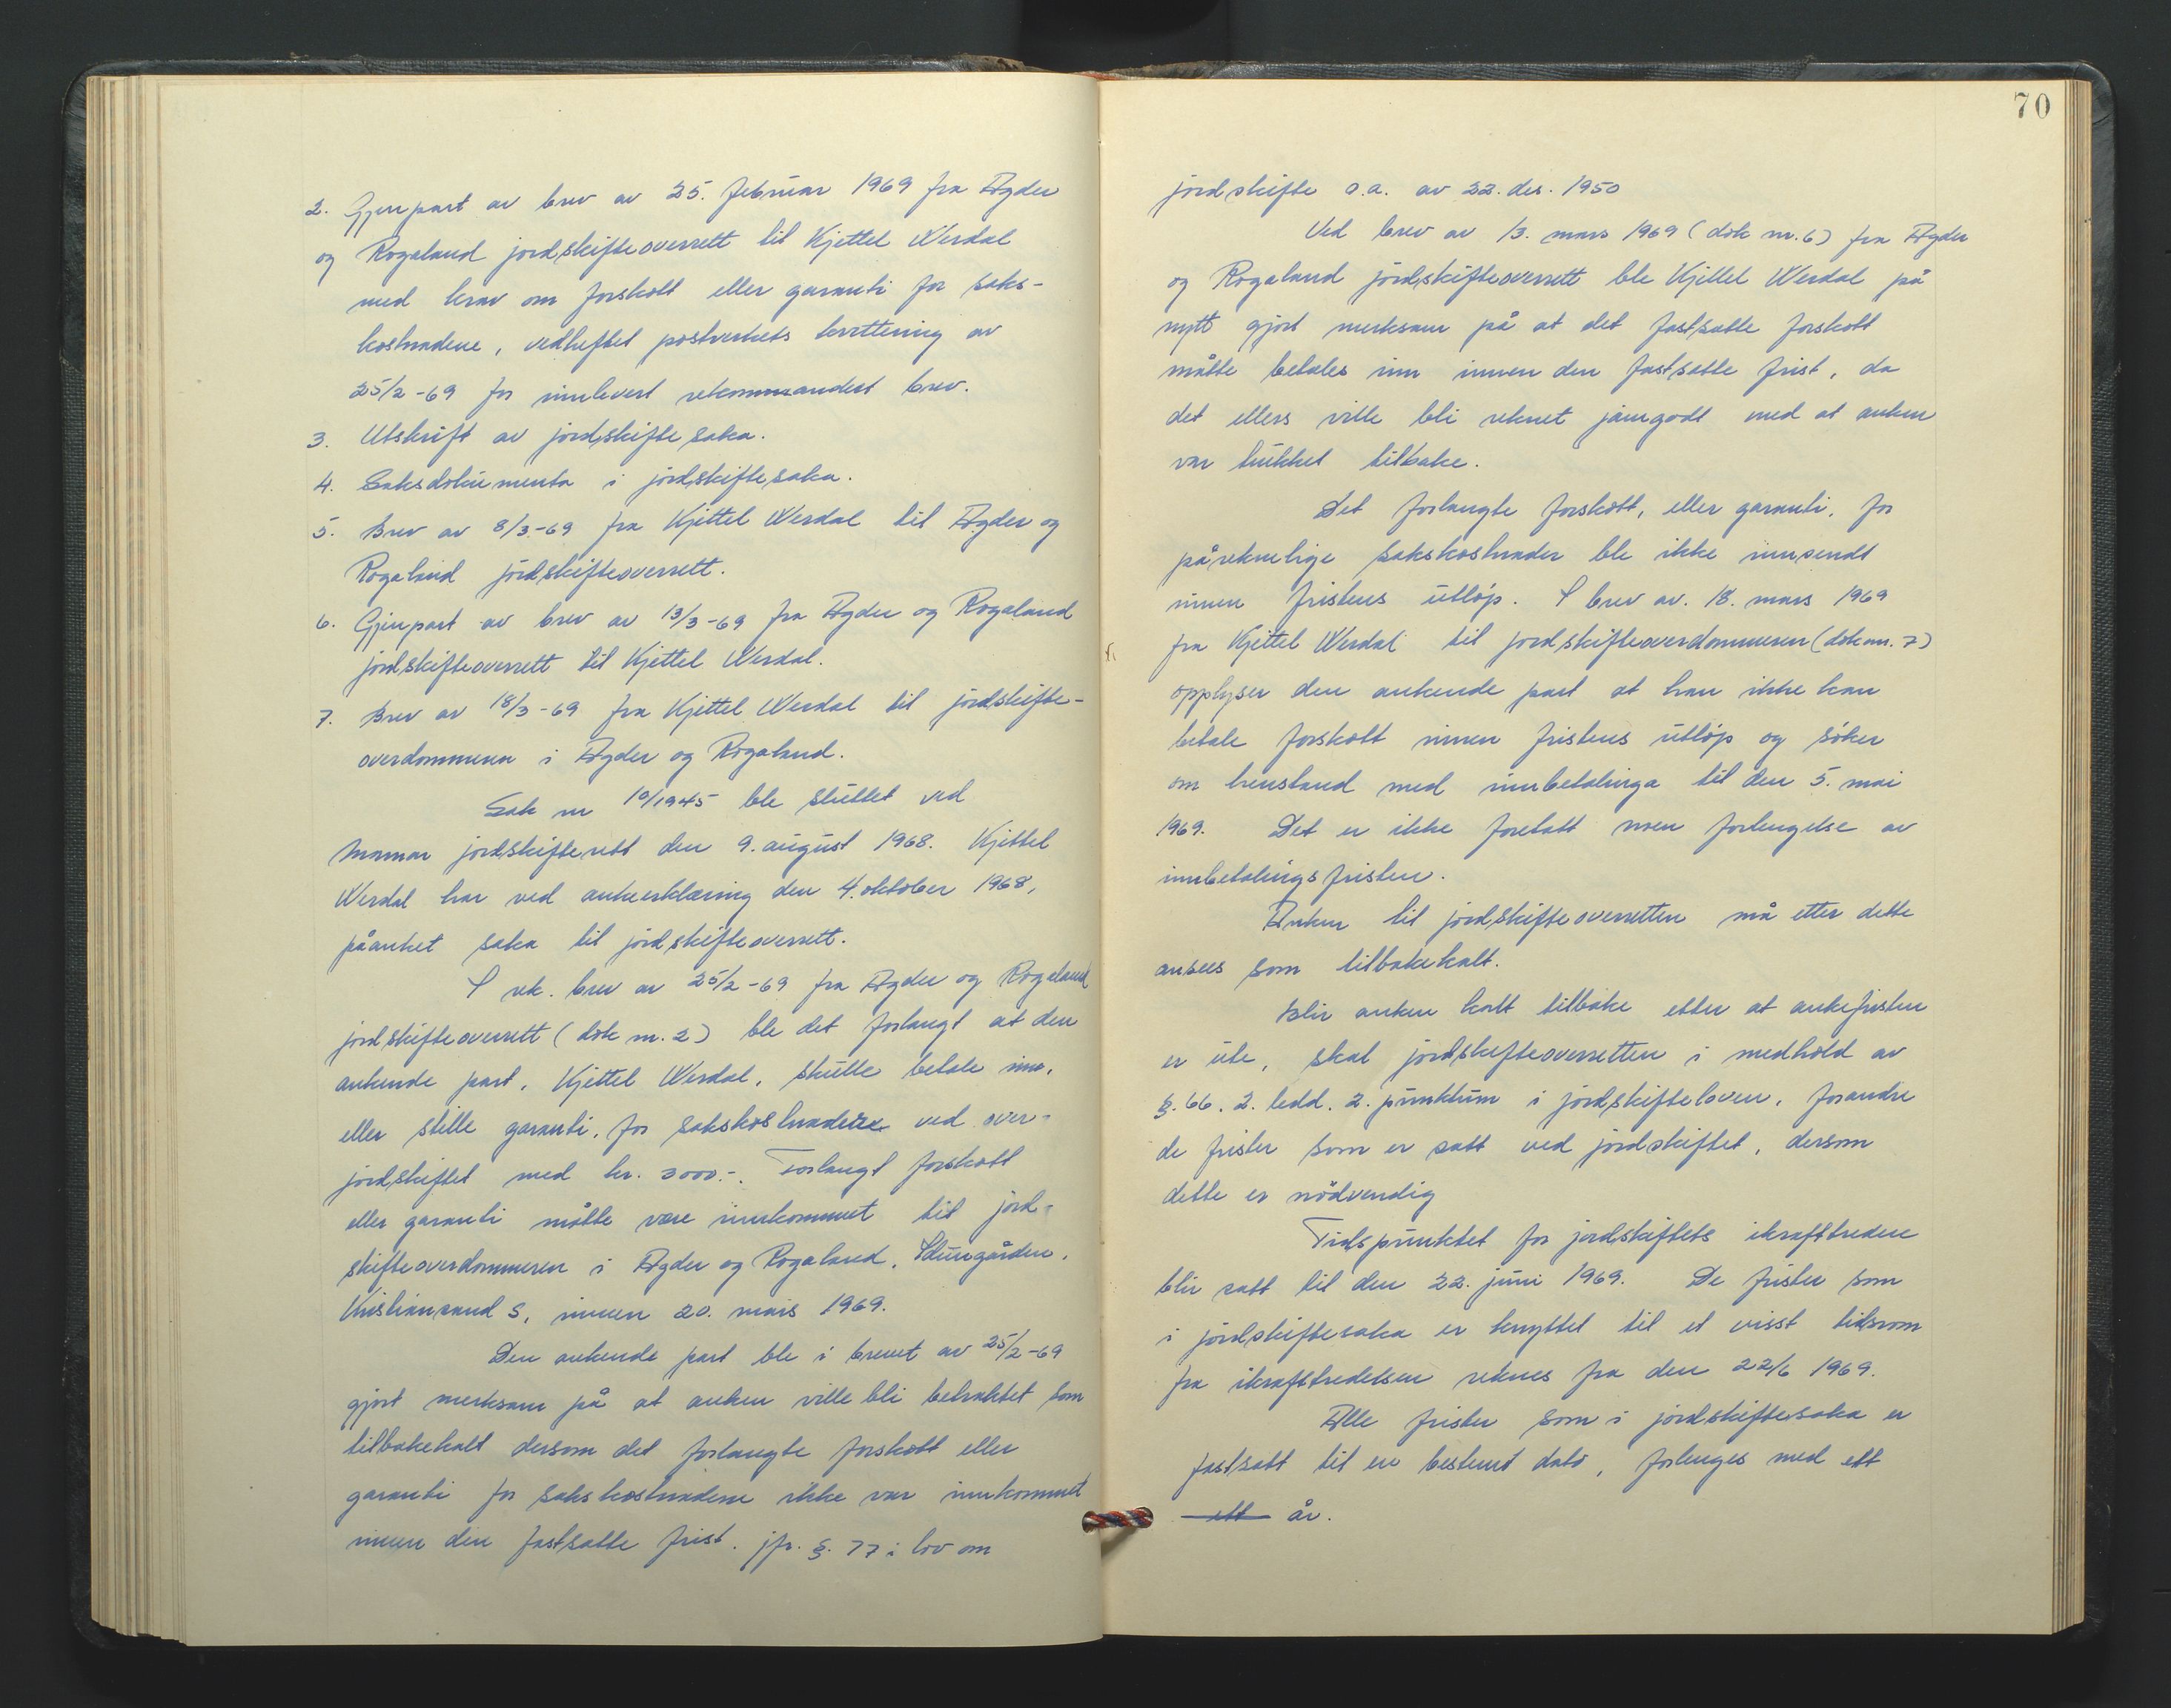 2. Gjenpart av brev av 25. februar 1969 fra Agder
og Rogaland jordskifteoverrett til Kjettel Werdal
med krav om forskott eller garanti for saks-
kostnadene, vedheftet postverkets kvittering av
25/2-69 for innlevert rekommandert brev.
3. Utskrift av jordskiftesaka.
4. Saksdokumenta i jordskiftesaka.
5. Brev av 8/3-69 fra Kjettel Werdal til Agder og
Rogaland jordskifteoverrett.
6. Gjenpart av brev av 13/3-69 fra Agder og Rogaland
jordskifteoverrett til Kjettel Werdal.
7. Brev av 18/3-69 fra Kjettel Werdal til jordskifte-
overdommeren i Agder og Rogaland.
Sak nr 10/1945 ble sluttet ved
Marnar jordskifterett den 9. august 1968. Kjettel
Werdal har ved ankeerklæring den 4. oktober 1968,
påanket saka til jordskifteoverrett.
I rek. brev av 25/2-69 fra Agder og Rogaland
jordskifteoverrett (dok nr. 2) ble det forlangt at den
ankende part, Kjettel Werdal, skulle betale inn,
eller stille garanti, for sakskostnadene ved over-
jordskiftet med kr. 3000.-. Forlangt forskott
eller garanti måtte være innkommet til jord-
skifteoverdommeren i Agder og Rogaland, Idungården,
Kristiansand S, innen 20. mars 1969.
Den ankende part ble i brevet av 25/2-69
gjort merksam på at anken ville bli betraktet som
tilbakekalt dersom det forlangte forskott eller
garanti for sakskostnadene ikke var innkommet
innen den fastsatte frist. jfr. §. 77 i lov om
70
jordskifte o.a. av 22. des. 1950
Ved brev av 13. mars 1969 (dok nr. 6) fra Agder
og Rogaland jordskifteoverrett ble Kjettel Werdal på
nytt gjort merksam på at det fastsatte forskott
måtte betales inn innen den fastsatte frist, da
det ellers ville bli reknet jamgodt med at anken
var trukket tilbake.
Det forlangte forskott, eller garanti, for
påreknelige sakskostnader ble ikke innsendt
innen fristens utløp. I brev av. 18. mars 1969
fra Kjettel Werdal til jordskifteoverdommeren (dok nr. 7)
opplyser den ankende part at han ikke kan
betale forskott innen fristens utløp og søker
om henstand med innbetalinga til den 5. mai
1969. Det er ikke foretatt noen forlengelse av
innbetalingsfristen.
Anken til jordskifteoverretten må etter dette
ansees som tilbakekalt.
Blir anken kalt tilbake etter at ankefristen
er ute, skal jordskifteoverretten i medhold av
§. 66. 2. ledd. 2. punktum i jordskifteloven, forandre
de frister som er satt ved jordskiftet, dersom
dette er nödvendig
Tidspunktet for jordskiftets ikrafttreden
blir satt til den 22. juni 1969. De frister som
i jordskiftesaka er knyttet til et visst tidsrom
fra ikrafttredelsen reknes fra den 22/6 1969.
Alle frister som i jordskiftesaka er
fastsatt til en bestemt dato, forlenges med ett
ett år.